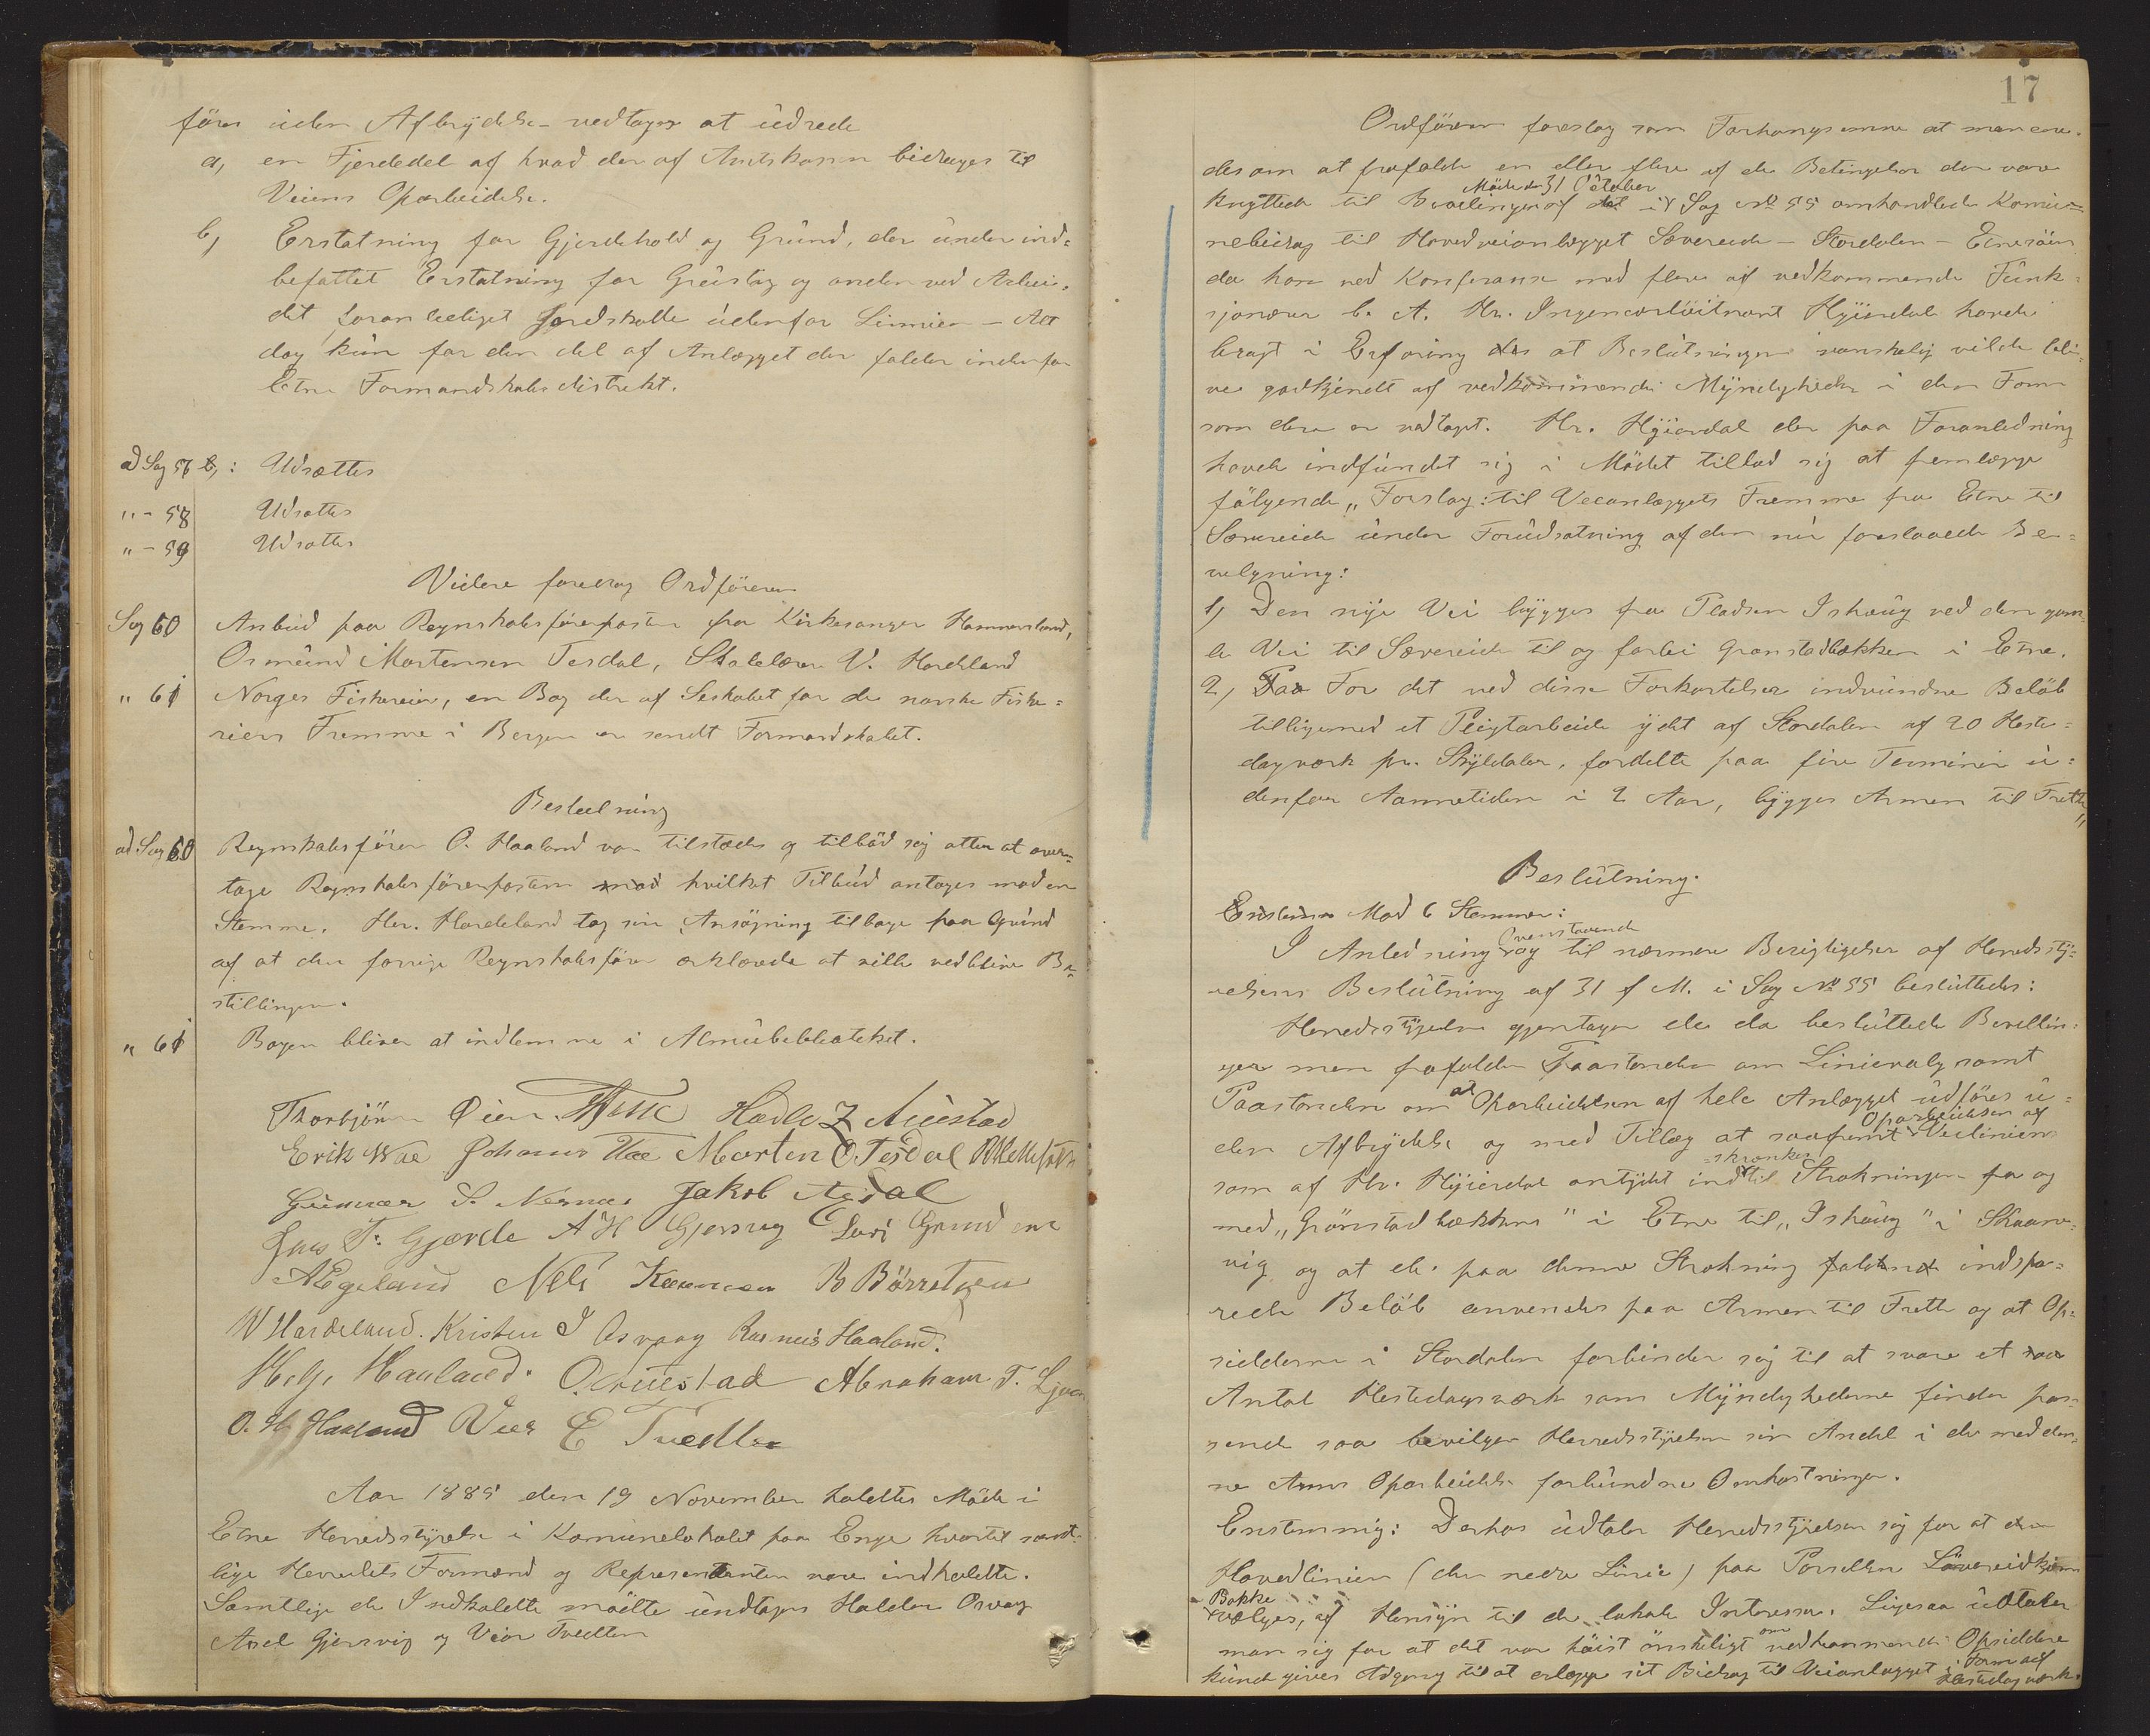 föres uden Afbrydelse – vedtages at udrede
a, en Fjerdedel af hvad der af Amtskassen bidrages til
Veiens Oparbeidelse.
b, Erstatning for Gjerdehold og Grund, der under ind-
befattet Erstatning for Grustag og anden ved Arbei-
det foranlediget Jordskade udenfor Linnien – Alt
dog kun for den del af Anlægget der falder indenfor
Etne Formandskabsdistrikt.
ad Sag 56 b, : Udsættes
" - 58 Udsættes
" - 59 Udsættes
Videre foredrog Ordföreren
Sag 60 Anbud paa Regnskabsförerposten fra Kirkesanger Hammersland,
Osmund Mortensen Tesdal, Skolelærer V. Hardeland
" 61 Norges Fiskerier, en Bog der af Selskabet for de norske Fiske-
riers Fremme i Bergen er sendt Formandskabet.
Beslutning
ad Sag 60 Regnskabsförer O. Haaland var tilstede og tilböd sig atter at over-
tage Regnskabsförerposten mod hvilket Tilbud antoges mod en
Stemme. Hr. Hardeland tog sin Ansögning tilbage paa Grund
af at den forrige Regnskabsförer erklærede at ville vedblive Be-
stillingen.
" 61 Bogen bliver at indlemme i Almuebibliotheket.
Thorbjörn Öien Hadle Z Auestad
Erik Wae Johans Wae Morten O Tesdal
Gunnar S. Nernæs Jakob Agdal
Lars T. Gjærde A H Gjersvig Lars Grindeim
A Egeland Nels B Börretzen
W Hardeland. Kristen I Osvaag Rasmus Haaland.
Helge Haaland. O. Auestad Abraham T.
O. H. Haaland Vier E Tvedten
Aar 1885 den 19 November holdtes Möde i
Etne Herredsstyrelse i Komunelokalet paa Enge hvortil samt-
lige Herredets Formænd og Repræsentanter vare indkaldte.
Samtlige de Indkaldte mödte undtagen Halder Osvag
Axel Gjersvig og Vier Tvedten
17
Ordföreren foreslog som Forhangsemne at man ene-
des om at frafalde en eller flere af de Betingelser der vare
Möde den 31 October
knyttede til Bevilgningen af det i Sag No 55 omhandlede Komu-
nebidrag til Hovedveianlægget Sævereide – Stordalen – Etnesöen
da han ved Konferanse med flere af vedkommende Funk-
sjonærer b. A. Hr. Ingeniörlöitnant Hjierdal havde
bragt i Erfaring at Beslutningen vanskelig vilde bli-
ve godkjendt af vedkommende Myndigheder i den Form
som den er vedtaget. Hr. Hjierdal der paa Foranledning
havde indfundet sig i Mödet tillod sig at fremlægge
fölgende „Forslag: til Veianlæggets Fremme fra Etne til
Sævereide under Forudsætning af den nu foreslaaede Be-
vilgning:
1, Den nye Vei bygges fra Pladsen Ishaug ved den gam-
le Vei til Sævereide til og forbi Grønstadbækken i Etne.
2, For det ved disse Forkortelser indvundne Belöb
tilligemed et Pligtarbeide ydet af Stordalen af 20 Heste-
dagværk pr. Skyldaler, fordelte paa fire Terminer u-
denfor Aannetiden i 2 Aar, bygges Armen til Frette"
Beslutning.
Mod 6 Stemmer:
ovenstaaende
I Anledning og til nærmere Berigtigelse af Herredssty-
relsens Beslutning af 31 f M. i Sag No 55 besluttedes:
Herredsstyrelsen gjentager de da besluttede Bevillin-
ger men frafalder Paastanden om Linievalg samt
Paastanden om at Oparbeidelsen af hele Anlægget udföres u-
Oparbeidelsen af
den Afbrydelse og med Tillæg at saafremt Veilinien
skrænkes
som af Hr. Hjierdal antydet ind til Strækningen fra og
med „Grönstadbækken" i Etne til „Ishaug" i Skaane-
vig og at de paa denne Strækning indspa-
rede Belöb anvendes paa Armen til Frette og at Op-
sidderne i Stordalen forbinder sig til at svare et
Antal Hestedagsværk som Myndighederne finder pas-
sende saa bevilger Herredsstyrelsen sin Andel i de med den-
ne Arms Oparbeidelse forbundne Omkostninger.
Enstemmig: Derhos udtaler Herredsstyrelsen sig for at
Hovedlinien (den nedre Linie) paa Parsellen
Bakke
vælges, af Hensyn til de lokale Interesser. Ligesaa udtaler
man sig for at det var höist önskeligt om vedkommende Opsiddere
kunde gives Adgang til at erlægge sit Bidrag til Veianlægget i Form af
Hestedagværk.